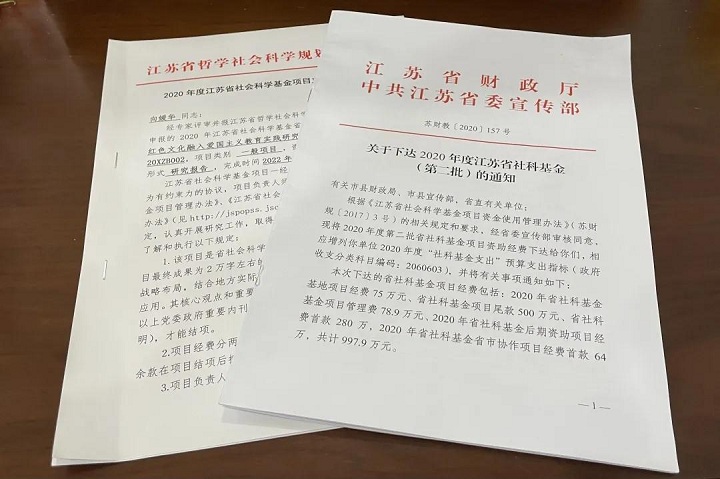 江苏省哲学社会科学规划
2020 年度江苏省社会科学基金项目
同志:
经专家评审并报江苏省哲学社会科学
申报的 2020 年江苏省社会科学基金省
红色文化融入爱国主义教育实践研究
20XZB002, 项目类别 一般项目,
形式 研究报告, 完成时间 2022 年
江苏省社会科学基金项目一经
为有约束力的协议, 项目负责人
金项目管理办法》、《江苏省社会
办法》(见 http://jspopss.jsc
定, 认真开展研究工作, 取得
了解和执行以下规定:
1.该项目是省社会科学
目最终成果为 2 万字左右的
战略布局, 结合地方实际
应用。其核心观点和重要
以上党委政府重要内刊
明), 才能结项。
2.项目经费分两
余款在项目结项后
3.项目负责人
江苏省财政厅
中共江苏省委宣传部
苏财教〔2020〕157 号
关于下达 2020 年度江苏省社科基金
(第二批)的通知
有关市县财政局、市县宣传部, 省直有关单位:
根据《江苏省社会科学基金项目资金使用管理办法》(苏财
规〔2017〕3 号)的相关规定和要求, 经省委宣传部审核同意,
现将 2020 年度第二批省社科基金项目资助经费下达给你们, 相
应增列你单位 2020 年度“社科基金支出”预算支出指标(政府
收支分类科目编码: 2060603), 并将有关事项通知如下:
本次下达的省社科基金项目经费包括: 2020 年省社科基金
基地项目经费 75 万元、省社科基金项目尾款 500 万元、省社科
基金项目管理费 78.9 万元、2020 年省社科基金后期资助项目经
费首款 280 万, 2020 年省社科基金省市协作项目经费首款 64
万, 共计 997.9 万元。
—1—